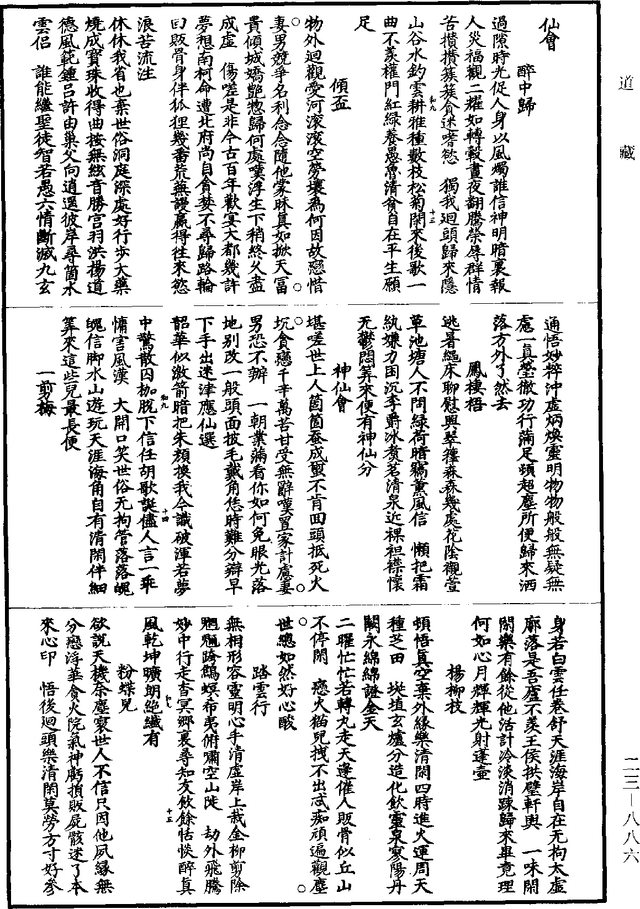 道藏
仙會
醉中歸
過隙時光促人身以風燭誰信神明暗裏報
人災福觀二耀如轉轂晝夜翻騰榮辱群情
苦攢攢簇簇貪迷嗜慾　獨我迴頭歸來隱
山谷水釣雲耕雅種數枝松菊閑來後歌一
曲不羨權門紅綠養愚魯清貧自在平生願
足
傾盃
物外迴觀愛河滾滾空勞壞為何因故戀惜
妻男競爭名利念念隨他蒙昧真如掀天富
貴傾城嬌艷惣歸何處嘆浮生下稍終久盡
成虛　傷嗟是非今古百年歡宴大都幾許
夢想南柯命遭北府尚自貪婪不尋歸路輪
回販骨身伴狐狸幾番荒無謾贏得往來慾
浪苦流注
休休我省也棄世俗洞庭深處好行步大藥
燒成寶珠收得曲按無絃音勝宮羽洪揚道
德風範鍾呂許由巢父向逍遥彼岸尋箇水
雲侶　誰能繼聖徒智若愚六情斷滅九玄
通悟妙粹沖虛炳煥靈明物物般般無疑無
慮一真瑩徹功行滿足頓超塵所便歸來洒
落方外了然去
鳳棲梧
逃暑繩床聊慰興翠籜森森幾處花陰襯萱
草池塘人不問綠荷暗竊薰風信　懶把霜
紈嫌力困沉李爵冰煑茗清泉近裸袒襟懷
无鬱悶筭來便有神仙分
神仙會
堪嗟世上人箇箇蚕成蜜不肯回頭抵死火
坑貪戀千辛萬苦甘受無辭嘆置家計慮妻
男恐不辦　一朝業滿看你如何免眼光落
地別改一般頭面披毛戴角恁時難分辯早
下手出迷津應仙選
韶華似激箭暗把朱顏換我今識破渾若夢
中驚散囚枷脫下信任胡歌誕儘人言一乖
慵害風漢　大開口笑世俗无拘管落落魄
魄信脚水山遊玩天涯海角自有清閑伴細
筭來這些兒最長便
一剪梅
身若白雲任卷舒天涯海岸自在无拘太虛
廓落是吾廬不羨王侯拱璧軒輿　一味閑
閑樂有餘從他活計冷淡消踈歸來畢竟理
何如心月輝輝光射蓬壺
楊柳枝
頓悟真空棄外緣樂清閑四時進火運周天
種芝田　埏埴玄爐分造化飲靈泉寥陽丹
闕永綿綿證金天
二曜忙忙若轉丸走天邊催人販骨似丘山
不停閑　慾火猫兒拽不出忒痴頑遍觀塵
世總如然好心酸
踏雲行
無相形容靈明心手清虛岸上栽金柳剪除
魍魎跨鵾螟希夷俯瀰空山陡　劫外飛騰
妙中行走杳冥鄉裏尋知友飲餘恬惔醉真
風乾坤曠朗絕纖有
粉蝶兒
欲說天機奈塵寰世人不信只因他夙緣無
分戀浮華貪火院氣神虧損敗屍骸迷了本
來心印　悟後迴頭樂清閑莫勞方寸好參
二三—八八六